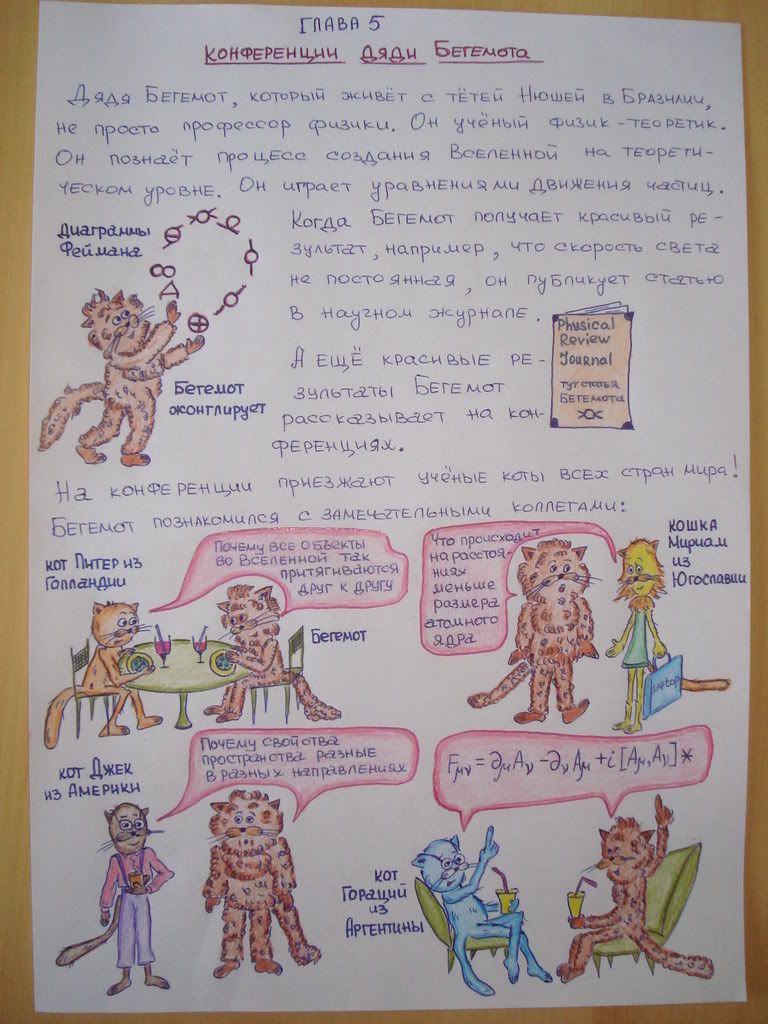 ГЛАВА 5
КОНФЕРЕНЦИИ ДЯДИ БЕГЕМОТА
ДЯДЯ БЕГЕМОТ, КОТОРЫЙ ЖИВЁТ С ТЁТЕЙ НЮШЕЙ В БРАЗИЛИИ,
НЕ ПРОСТО ПРОФЕССОР ФИЗИКИ. ОН УЧЁНЫЙ ФИЗИК-ТЕОРЕТИК.
ОН ПОЗНАЁТ ПРОЦЕСС СОЗДАНИЯ ВСЕЛЕННОЙ НА ТЕОРЕТИ-
ЧЕСКОМ УРОВНЕ. ОН ИГРАЕТ УРАВНЕНИЯМИ ДВИЖЕНИЯ ЧАСТИЦ.
Диаграммы
Феймана
Бегемот
жонглирует
КОГДА БЕГЕМОТ ПОЛУЧАЕТ КРАСИВЫЙ РЕ-
ЗУЛЬТАТ, НАПРИМЕР, ЧТО СКОРОСТЬ СВЕТА
НЕ ПОСТОЯННАЯ, ОН ПУБЛИКУЕТ СТАТЬЮ
В НАУЧНОМ ЖУРНАЛЕ.
Physical
Review
Journal
тут статья
БЕГЕМОТА
А ЕЩЁ КРАСИВЫЕ РЕ-
ЗУЛЬТАТЫ БЕГЕМОТ
РАССКАЗЫВАЕТ НА КОН-
ФЕРЕНЦИЯХ.
НА КОНФЕРЕНЦИИ ПРИЕЗЖАЮТ УЧЁНЫЕ КОТЫ ВСЕХ СТРАН МИРА!
БЕГЕМОТ ПОЗНАКОМИЛСЯ С ЗАМЕЧАТЕЛЬНЫМИ КОЛЛЕГАМИ:
КОТ ПИТЕР ИЗ
ГОЛЛАНДИИ
ПОЧЕМУ ВСЕ ОБЪЕКТЫ
ВО ВСЕЛЕННОЙ ТАК
ПРИТЯГИВАЮТСЯ
ДРУГ К ДРУГУ
БЕГЕМОТ
Что происходит
на расстоя-
ниях
меньше
размера
атомного
ядра
КОШКА
МИРИАМ
ИЗ
ЮГОСЛАВИИ
Laptop
КОТ ДЖЕК
ИЗ АМЕРИКИ
Почему свойства
пространства разные
в разных направлениях
Fμν = ∂μAν - ∂νAμ + i[Aμ,Aν]*
КОТ
ГОРАЦИЙ
ИЗ
АРГЕНТИНЫ